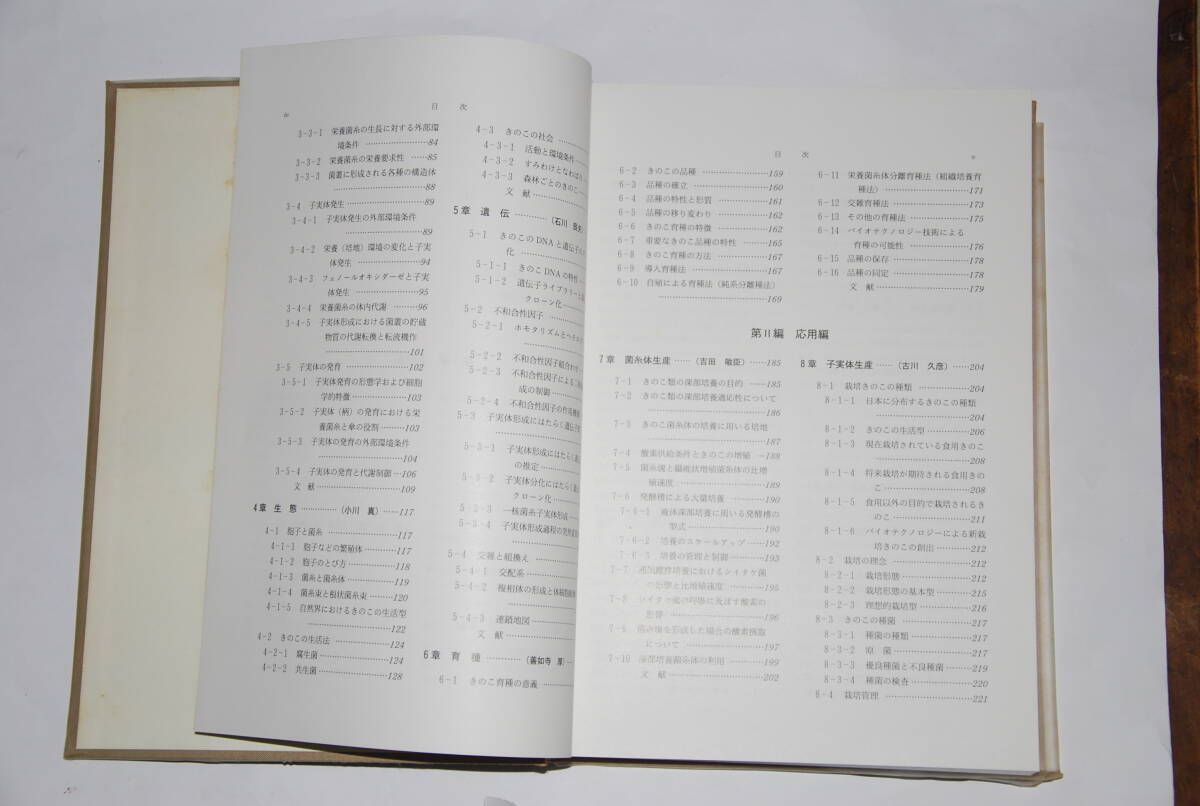 目 次
3-3-1 栄養菌糸の生長に対する外部環
境条件 ……………… 84
3-3-2 栄養菌糸の栄養要求性 …… 85
3-3-3 菌叢に形成される各種の構造体
……………………… 88
3-4 子実体発生 ……………………… 89
3-4-1 子実体発生の外部環境条件
……………………… 89
3-4-2 栄養（培地）環境の変化と子実
体発生 ……………… 94
3-4-3 フェノールオキシダーゼと子実
体発生 ……………… 95
3-4-4 栄養菌糸の体内代謝 ……… 96
3-4-5 子実体形成における菌叢の貯蔵
物質の代謝転換と転流機作
……………………… 101
3-5 子実体の発育 …………………… 102
3-5-1 子実体発育の形態学および細胞
学的特徴 …………… 103
3-5-2 子実体（柄）の発育における栄
養菌糸と傘の役割 ……… 103
3-5-3 子実体の発育の外部環境条件
……………………… 104
3-5-4 子実体の発育と代謝制御 … 106
文 献 ……………………… 109
4章 生 態 …………… （小川 真）…… 117
4-1 胞子と菌糸 ……………………… 117
4-1-1 胞子などの繁殖体 ………… 117
4-1-2 胞子のとび方 ……………… 118
4-1-3 菌糸と菌糸体 ……………… 119
4-1-4 菌糸束と樹状菌糸束 ……… 120
4-1-5 自然界におけるきのこの生活型
……………………… 122
4-2 きのこの生活法 ………………… 124
4-2-1 腐生菌 ……………………… 124
4-2-2 共生菌 ……………………… 128
4-3 きのこの社会 …………
4-3-1 活動と環境条件 ………
4-3-2 すみわけとなわばり
4-3-3 森林ごとのきのこ
文 献 …………
5章 遺 伝 ………… （石川
5-1 きのこのDNAと遺伝子の
化 …………
5-1-1 きのこDNAの特性
5-1-2 遺伝子ライブラリーと
クローン化 …………
5-2 不和合性因子 …………
5-2-1 ホモタリズムと
5-2-2 不和合性因子組合わせ
5-2-3 不和合性因子による
成の制御 …………
5-2-4 不和合性因子の作用機
5-3 子実体形成にはたらく遺伝子
5-3-1 子実体形成にはたらく
の推定 …………
5-3-2 子実体分化にはたらく
クローン化 …………
5-3-3 一核菌糸子実体形成
5-3-4 子実体形成過程の突然変
5-4 交雑と組換え …………
5-4-1 交配系 …………
5-4-2 複相体の形成と体細胞
5-4-3 連鎖地図 …………
文 献 …………
6章 育 種 ………… （善如寺 厚）
6-1 きのこ育種の意義 …………
目 次
6-2 きのこの品種 ………………… 159
6-3 品種の確立 …………………… 160
6-4 品種の特性と形質 …………… 161
6-5 品種の移り変わり …………… 162
6-6 きのこ育種の特徴 …………… 162
6-7 重要なきのこ品種の特性 …… 165
6-8 きのこ育種の方法 …………… 167
6-9 導入育種法 …………………… 167
6-10 自殖による育種法（純系分離法）
……………………… 169
6-11 栄養菌糸体分離育種法（組織培養育
種法） ……………… 171
6-12 交雑育種法 …………………… 173
6-13 その他の育種法 ……………… 175
6-14 バイオテクノロジー技術による
育種の可能性 ……… 176
6-15 品種の保存 …………………… 178
6-16 品種の同定 …………………… 178
文 献 ……………………… 179
第II編 応用編
7章 菌糸体生産 …… （吉田 敏臣）…… 185
7-1 きのこ類の深部培養の目的 …… 185
7-2 きのこ類の深部培養適応性について
……………………… 186
7-3 きのこ菌糸体の培養に用いる培地
……………………… 187
7-4 酸素供給条件ときのこの増殖 … 188
7-5 菌糸塊と繊維状増殖菌糸体の比増
殖速度 ……………… 189
7-6 発酵槽による大量培養 ………… 190
7-6-1 液体深部培養に用いる発酵槽の
型式 ………………… 190
7-6-2 培養のスケールアップ …… 192
7-6-3 培養の管理と制御 ………… 193
7-7 通気撹拌培養におけるシイタケ菌
の形態と比増殖速度 …… 195
7-8 シイタケ菌の呼吸に及ぼす酸素の
影響 ………………… 196
7-9 菌糸塊を形成した場合の酸素摂取
について …………… 197
7-10 深部培養菌糸体の利用 ……… 199
文 献 ……………………… 202
8章 子実体生産 …… （古川 久彦）…… 204
8-1 栽培きのこの種類 ……………… 204
8-1-1 日本に分布するきのこの種類
……………………… 204
8-1-2 きのこの生活型 …………… 206
8-1-3 現在栽培されている食用きのこ
……………………… 208
8-1-4 将来栽培が期待される食用きの
こ …………………… 208
8-1-5 食用以外の目的で栽培されるき
のこ ………………… 211
8-1-6 バイオテクノロジーによる新栽
培きのこの創出 ……… 212
8-2 栽培の理念 ……………………… 212
8-2-1 栽培形態 …………………… 212
8-2-2 栽培形態の基本型 ………… 215
8-2-3 理想的栽培型 ……………… 216
8-3 きのこの種菌 …………………… 217
8-3-1 種菌の種類 ………………… 217
8-3-2 原 菌 ……………………… 217
8-3-3 優良種菌と不良種菌 ……… 219
8-3-4 種菌の検査 ………………… 220
8-4 栽培管理 ………………………… 221